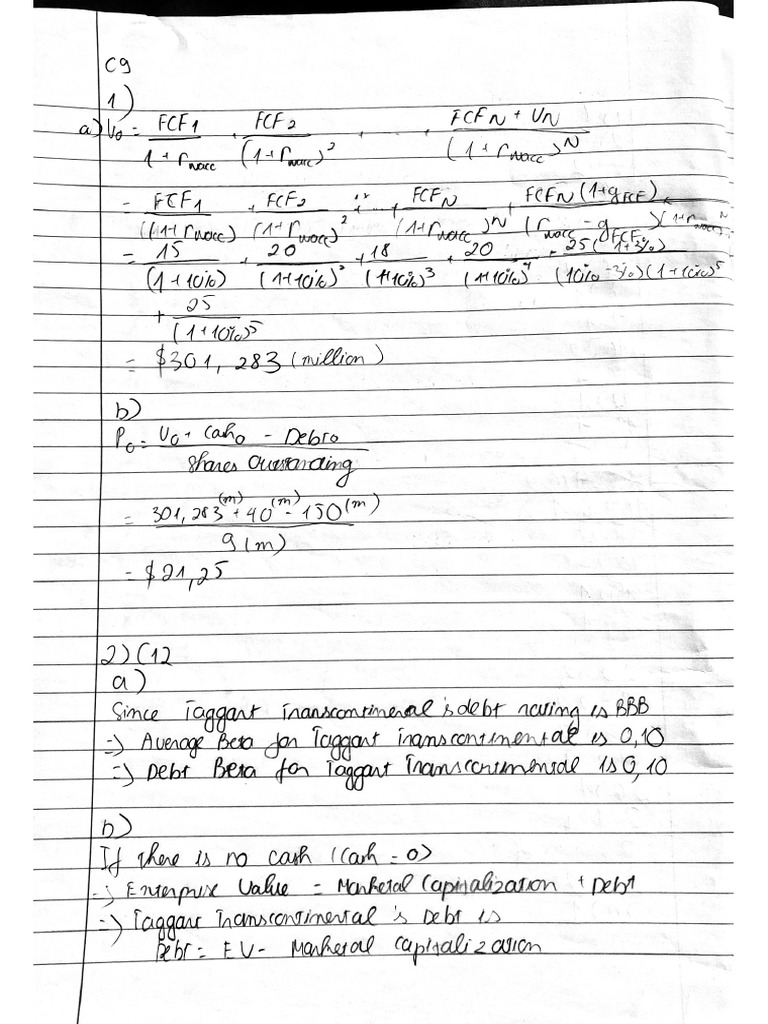 C9
1)
a) V0 = FCF1 / (1 + rwacc) + FCF2 / (1 + rwacc)^2 + . . + (FCFN + VN) / (1 + rwacc)^N
= FCF1 / (1 + rwacc) + FCF2 / (1 + rwacc)^2 + ... + FCFN / (1 + rwacc)^N + FCFN (1 + gFCF) / (rwacc - gFCF)(1 + rwacc)^N
= 15 / (1 + 10%) + 20 / (1 + 10%)^2 + 18 / (1 + 10%)^3 + 20 / (1 + 10%)^4 + 25 (1 + 3%) / (10% - 3%)(1 + 10%)^5
+ 25 / (1 + 10%)^5
= $301,283 (million)
b)
P0 = (V0 + Cash0 - Debt0) / Shares Outstanding
= (301,283 (m) + 40 (m) - 150 (m)) / 9 (m)
= $21,25
2) C12
a)
Since Taggart Transcontinental's debt rating is BBB
=> Average Beta for Taggart Transcontinental is 0,10
=> Debt Beta for Taggart Transcontinental is 0,10
b)
If there is no cash (Cash = 0)
=> Enterprise Value = Marketal Capitalization + Debt
=> Taggart Transcontinental's Debt is
Debt = EV - Marketal Capitalization